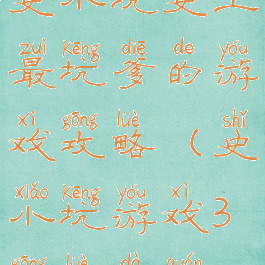 zuì kēng diē de yóu
最坑爹的游
xì gōng lüè shǐ
戏攻略（史
xiǎo kēng yóu xì
小坑游戏3